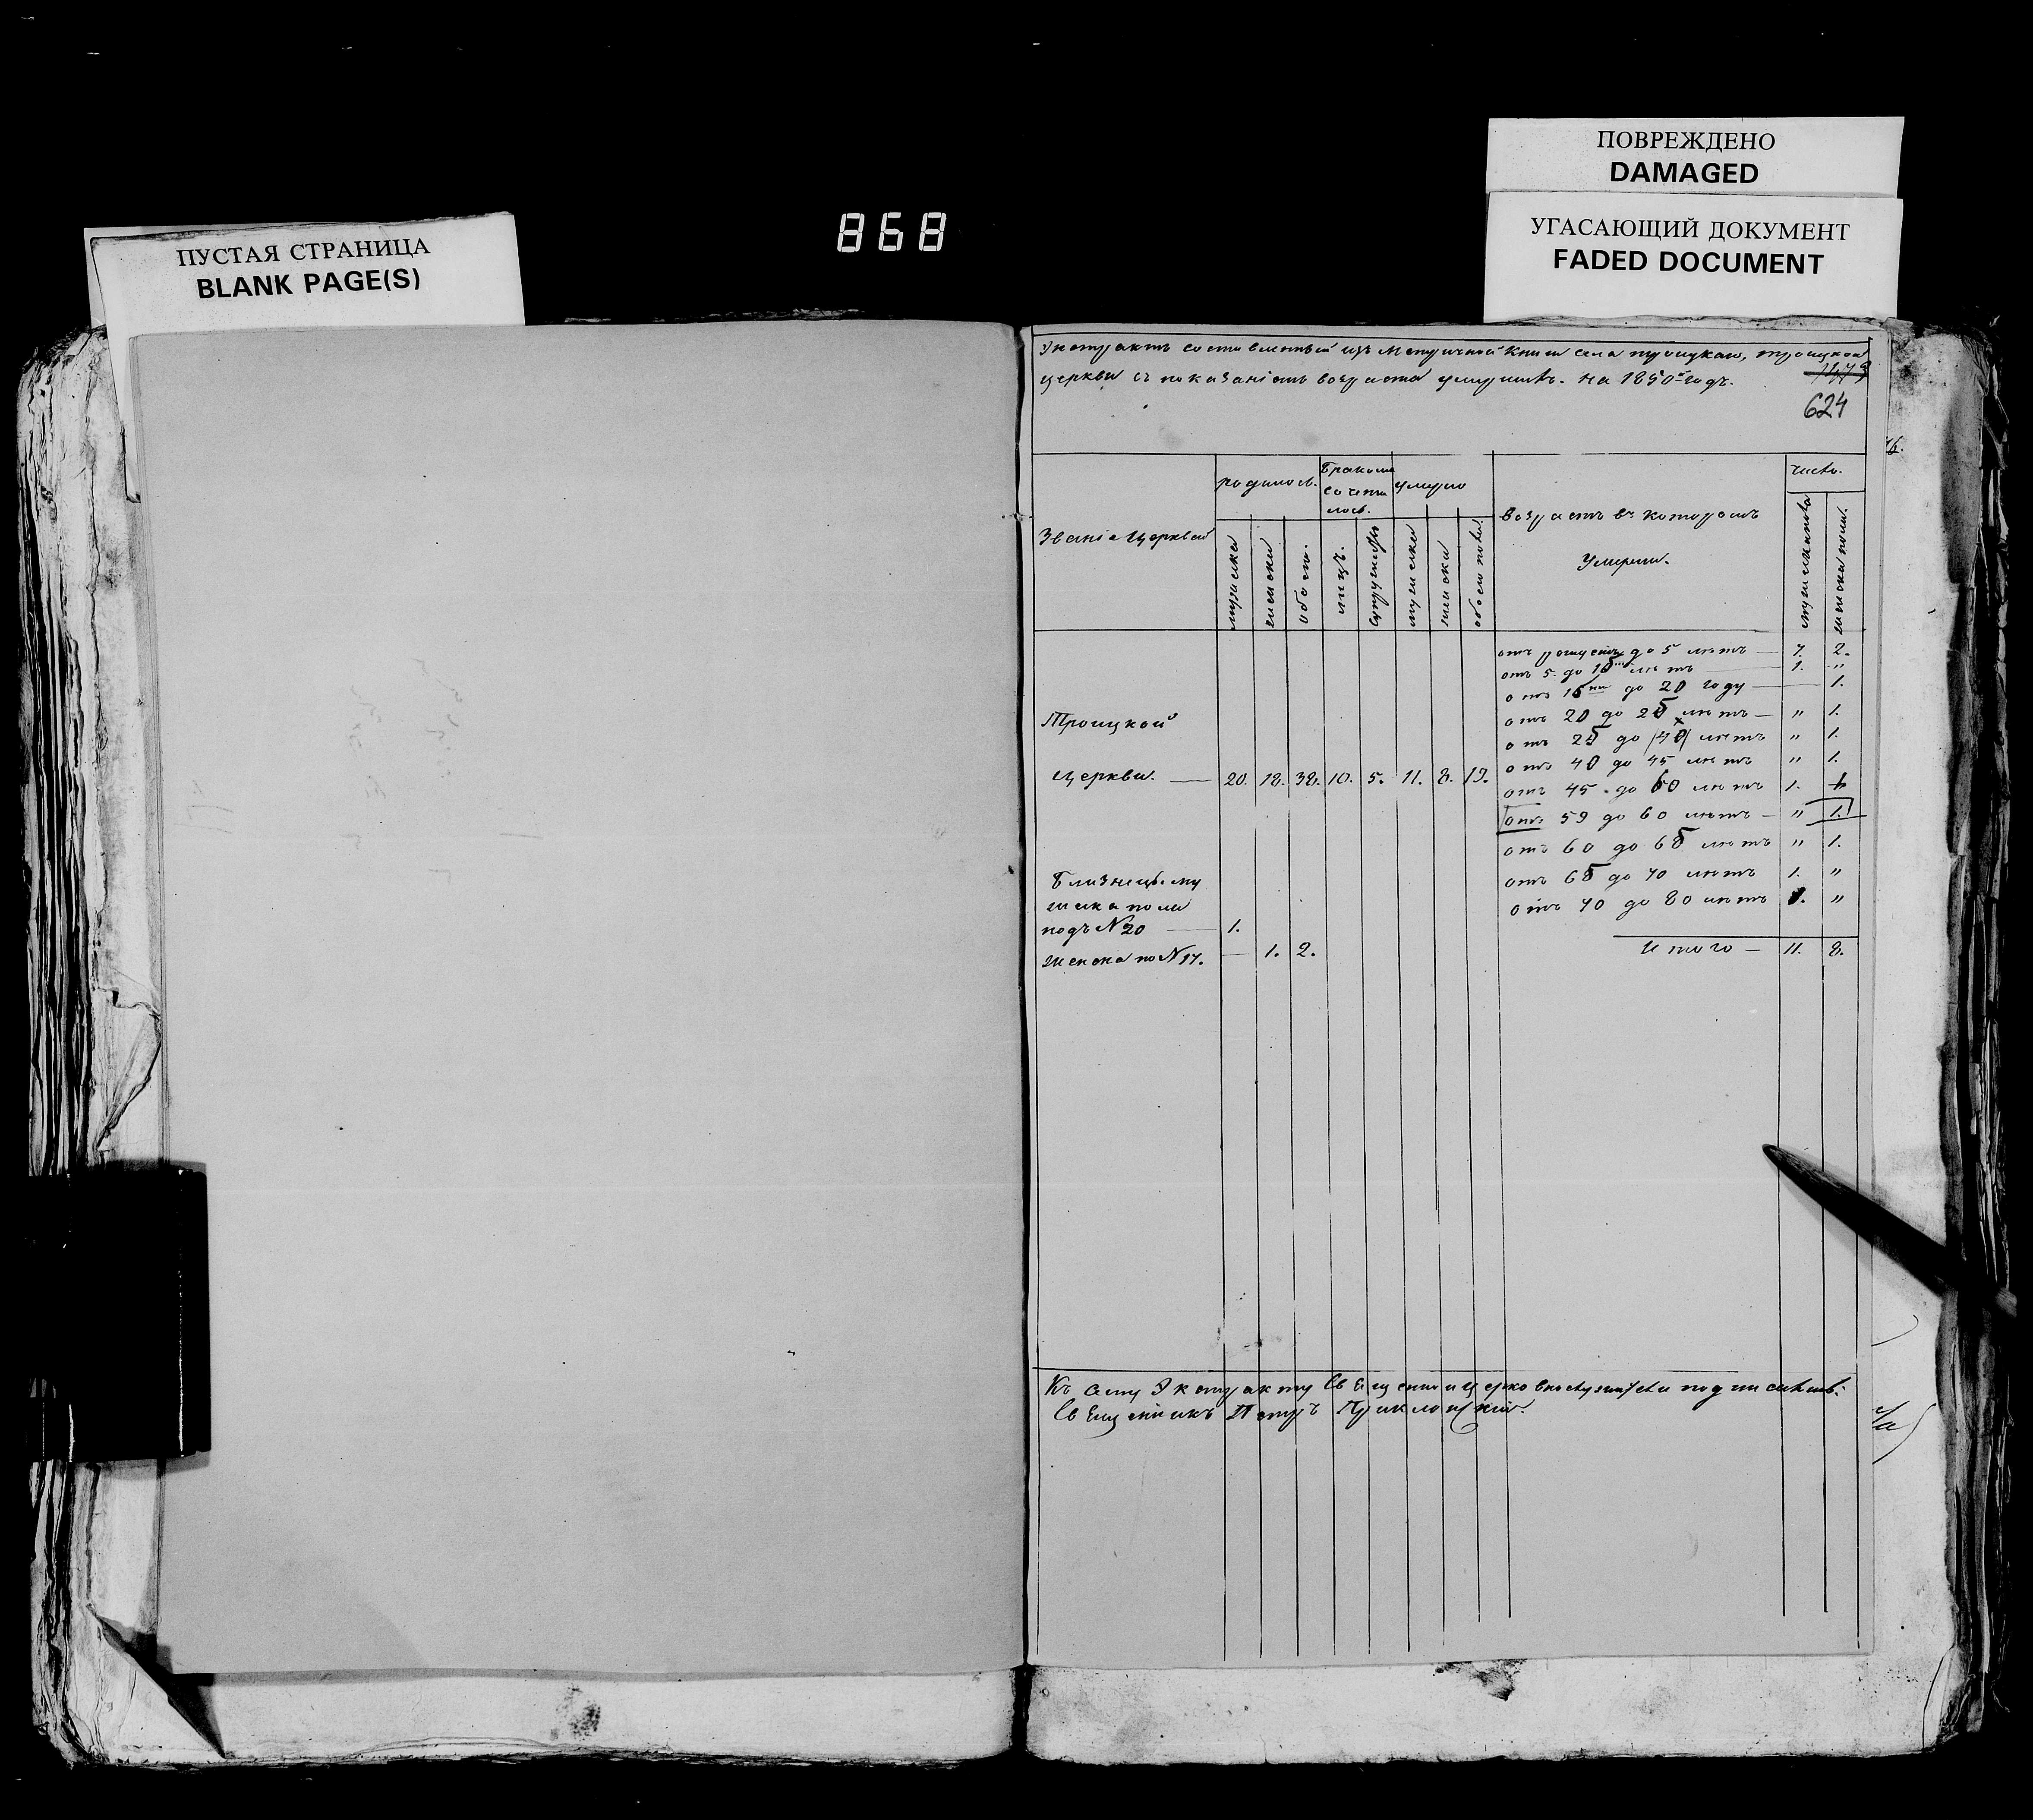 ПОВРЕЖДЕНО
DAMAGED
УГАСАЮЩИЙ ДОКУМЕНТ
FADED DOCUMENT
868
ПУСТАЯ СТРАНИЦА
BLANK PAGE(S)
Экстрактъ составленный изъ Метричной Книги села троицкаго, троицкой
церкви съ показаніемъ возраста умершихъ. на 1850й годъ.
624
Званіе Церквей
родилось.
мужска
женска
обоего.
Бракомъ
сочета
лось.
лицъ.
супружествъ
умерло
мужска
женска
обоего пола
возрастъ въ которомъ
Умерли.
число.
мужеска пола
женска пола.
отъ рожденія до 5 лѣтъ — 7. 2.
отъ 5. до 15 лѣтъ — 1. "
отъ 15ти до 20 году — 1.
отъ 20 до 25 лѣтъ — " 1.
отъ 25 до 40 лѣтъ " 1.
отъ 40 до 45 лѣтъ " 1.
отъ 45 до 60 лѣтъ 1.
отъ 59 до 60 лѣтъ — " 1.
отъ 60 до 65 лѣтъ " 1.
отъ 65 до 70 лѣтъ 1. "
отъ 70 до 80 лѣтъ 1. "
Итого — 11. 8.
Троицкой
церкви. — 20. 18. 38. 10. 5. 11. 8. 19.
Близнецы му
жска пола
подъ №20 — 1.
женска по №17. — 1. 2.
Къ сему Экстракту Священно и церковнослужители подписались:
Священникъ Петръ